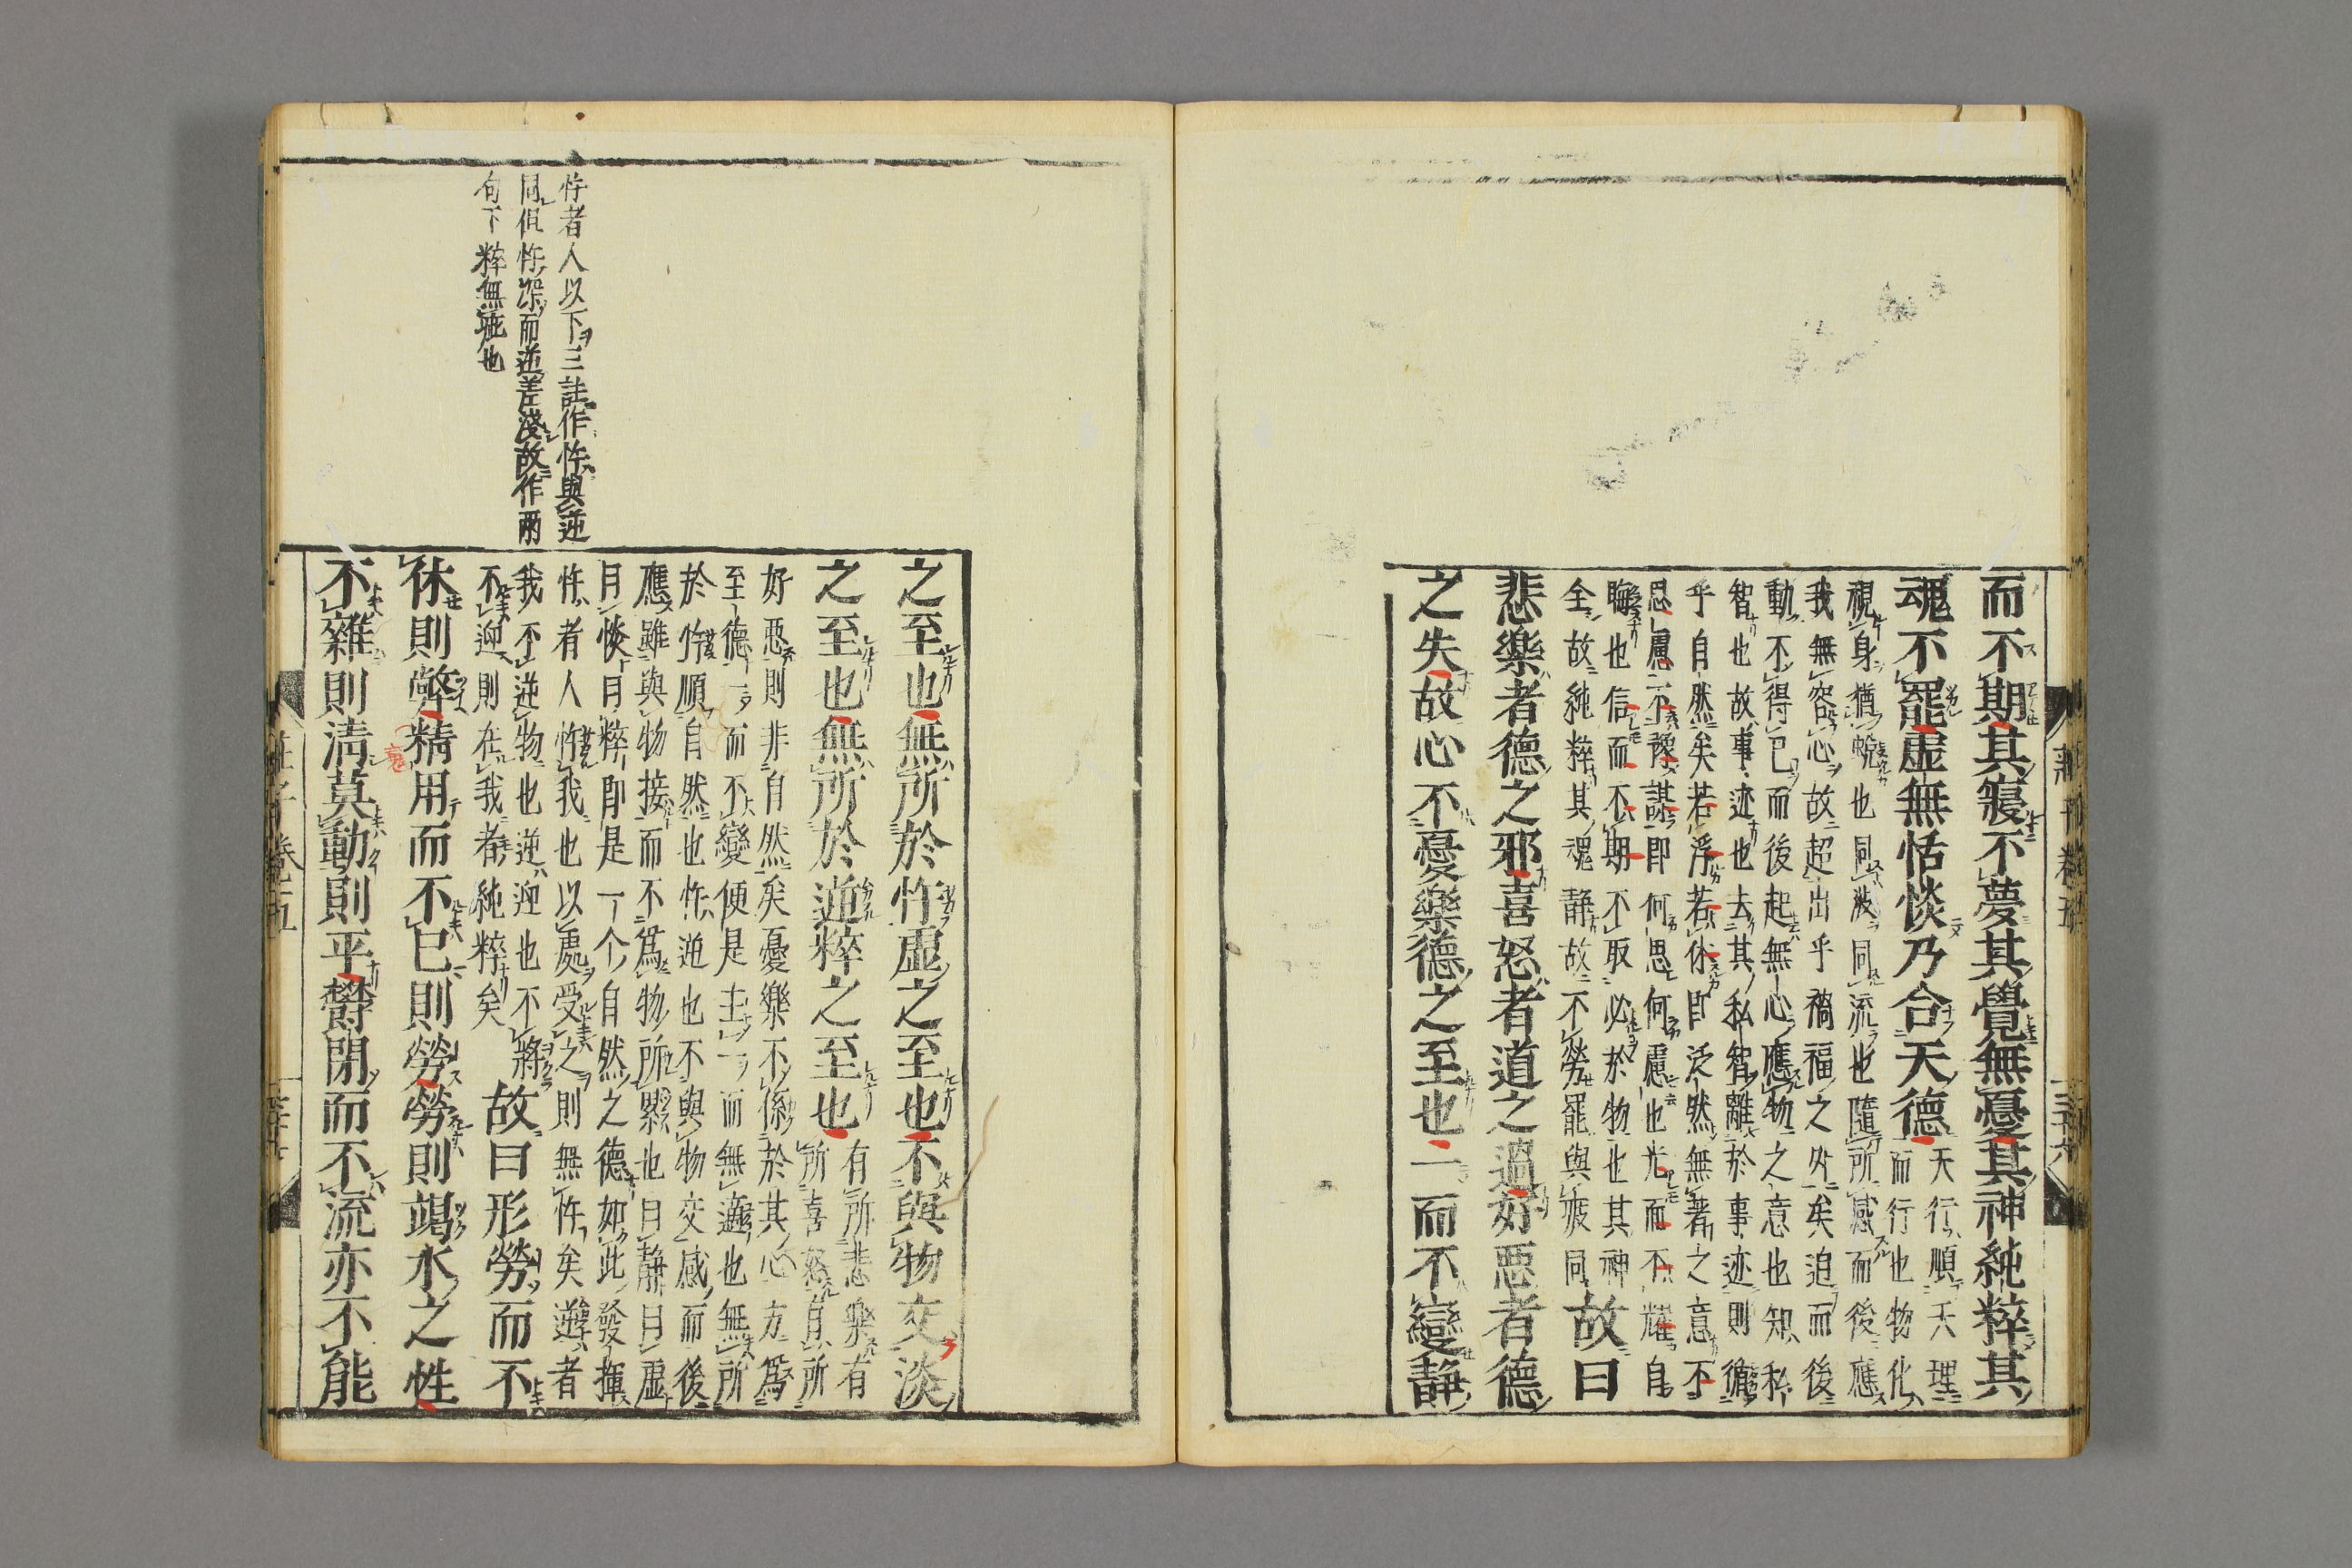 而不期其寢不夢其覺無憂其神純粹其
魂不罷虛無恬惔乃合天德
天行順天理
而行也物化
視身猶蛻也同波同流也隨所感而後應
我無容心故超出乎禍福之外矣迫而後
動不得已而後起無心應物之意也知私
智也故事迹也去其私智離於事迹則循
乎自然矣若浮若休即泛然無著之意不
思慮不豫謀即何思何慮也光而不耀自
晦也信而不期不取必於物也其神
全故純粹其魂靜故不勞罷與疲同
故曰
悲樂者德之邪喜怒者道之過好惡者德
之失故心不憂樂德之至也一而不變靜
忤者人以下三註作忤與逆
同但忤深而逆差淺故作兩
句下 粹無疵也
之至也無所於忤虛之至也不與物交淡
之至也無所於逆粹之至也
有所悲樂有
所喜怒有所
好惡則非自然矣憂樂不係於其心方為
至德一而不變便是主一而無適也無所
於忤順自然也忤逆也不與物交感而後
應雖與物接而不為物所累也曰靜曰虛
曰惔曰粹即是一个自然之德如此發揮
忤者人忤我也以處受之則無忤矣逆者
我不逆物也逆迎也不將
不迎則在我者純粹矣
故曰形勞而不
休則弊精用而不已則勞勞則竭水之性
不雜則清莫動則平鬱閉而不流亦不能